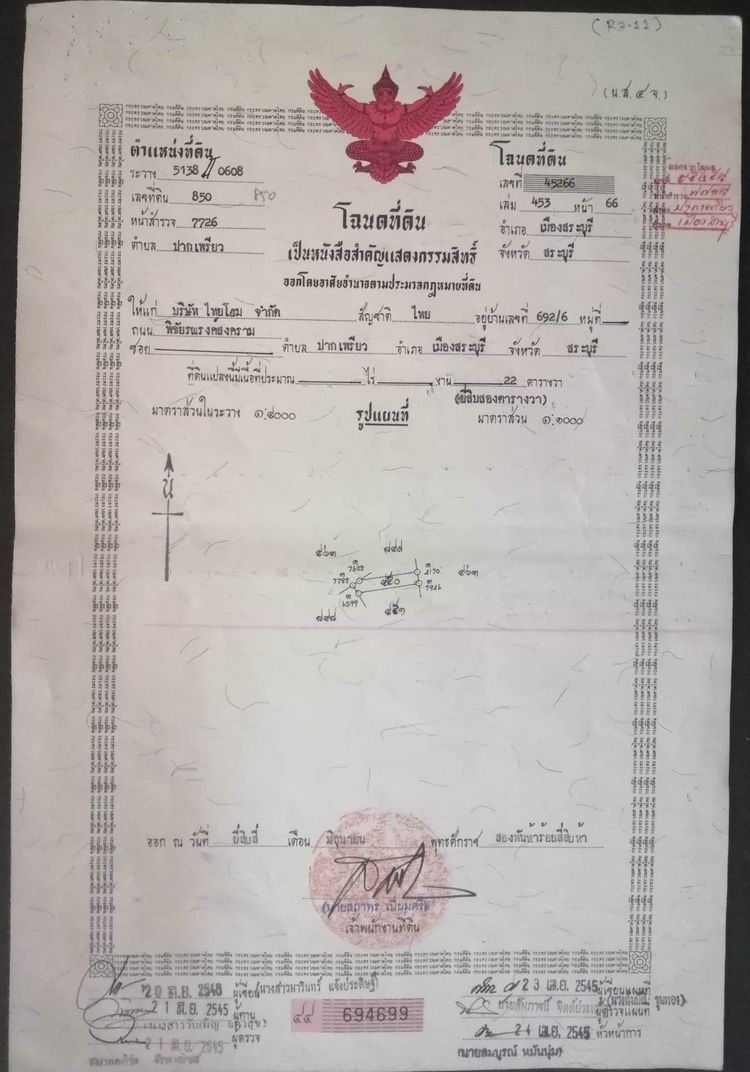 (R3-11)
(น.ส.๔ จ.)
ตำแหน่งที่ดิน
ระวาง 5138 II 0608
เลขที่ดิน 850 850
หน้าสำรวจ 7726
ตำบล ปากเพรียว
โฉนดที่ดิน
เลขที่ 45266
เล่ม 453 หน้า 66
อำเภอ เมืองสระบุรี
จังหวัด สระบุรี
โฉนดที่ดิน
เป็นหนังสือสำคัญแสดงกรรมสิทธิ์
ออกโดยอาศัยอำนาจตามประมวลกฎหมายที่ดิน
ให้แก่ บริษัท ไทยโฮม จำกัด สัญชาติ ไทย อยู่บ้านเลขที่ 692/6 หมู่ที่
ถนน พิชัยรณรงคสงคราม
ซอย ตำบล ปากเพรียว อำเภอ เมืองสระบุรี จังหวัด สระบุรี
ที่ดินแปลงนี้มีเนื้อที่ประมาณ ไร่ งาน 22 ตารางวา
(ยี่สิบสองตารางวา)
มาตราส่วนในระวาง ๑:๔๐๐๐ รูปแผนที่ มาตราส่วน ๑:๑๐๐๐
น
7602
7782
๘๕๐
6599
๘๕๑
ออก ณ วันที่ ยี่สิบสี่ เดือน มิถุนายน พุทธศักราช สองพันห้าร้อยสี่สิบห้า
(นายสถาพร เปี่ยมศรี)
เจ้าพนักงานที่ดิน
20 มิ.ย. 2545 ผู้เขียน (นางสาวผารินทร์ แจ้งประดิษฐ์)
21 มิ.ย. 2545 ผู้ทาน
21 มิ.ย. 2545 ผู้ตรวจ
694699
23 เม.ย. 2545 ผู้เขียนแผนที่
ผู้ตรวจแผนที่
24 เม.ย. 2545 หัวหน้าการ
(นายสมบูรณ์ หมั่นนุ่ม)